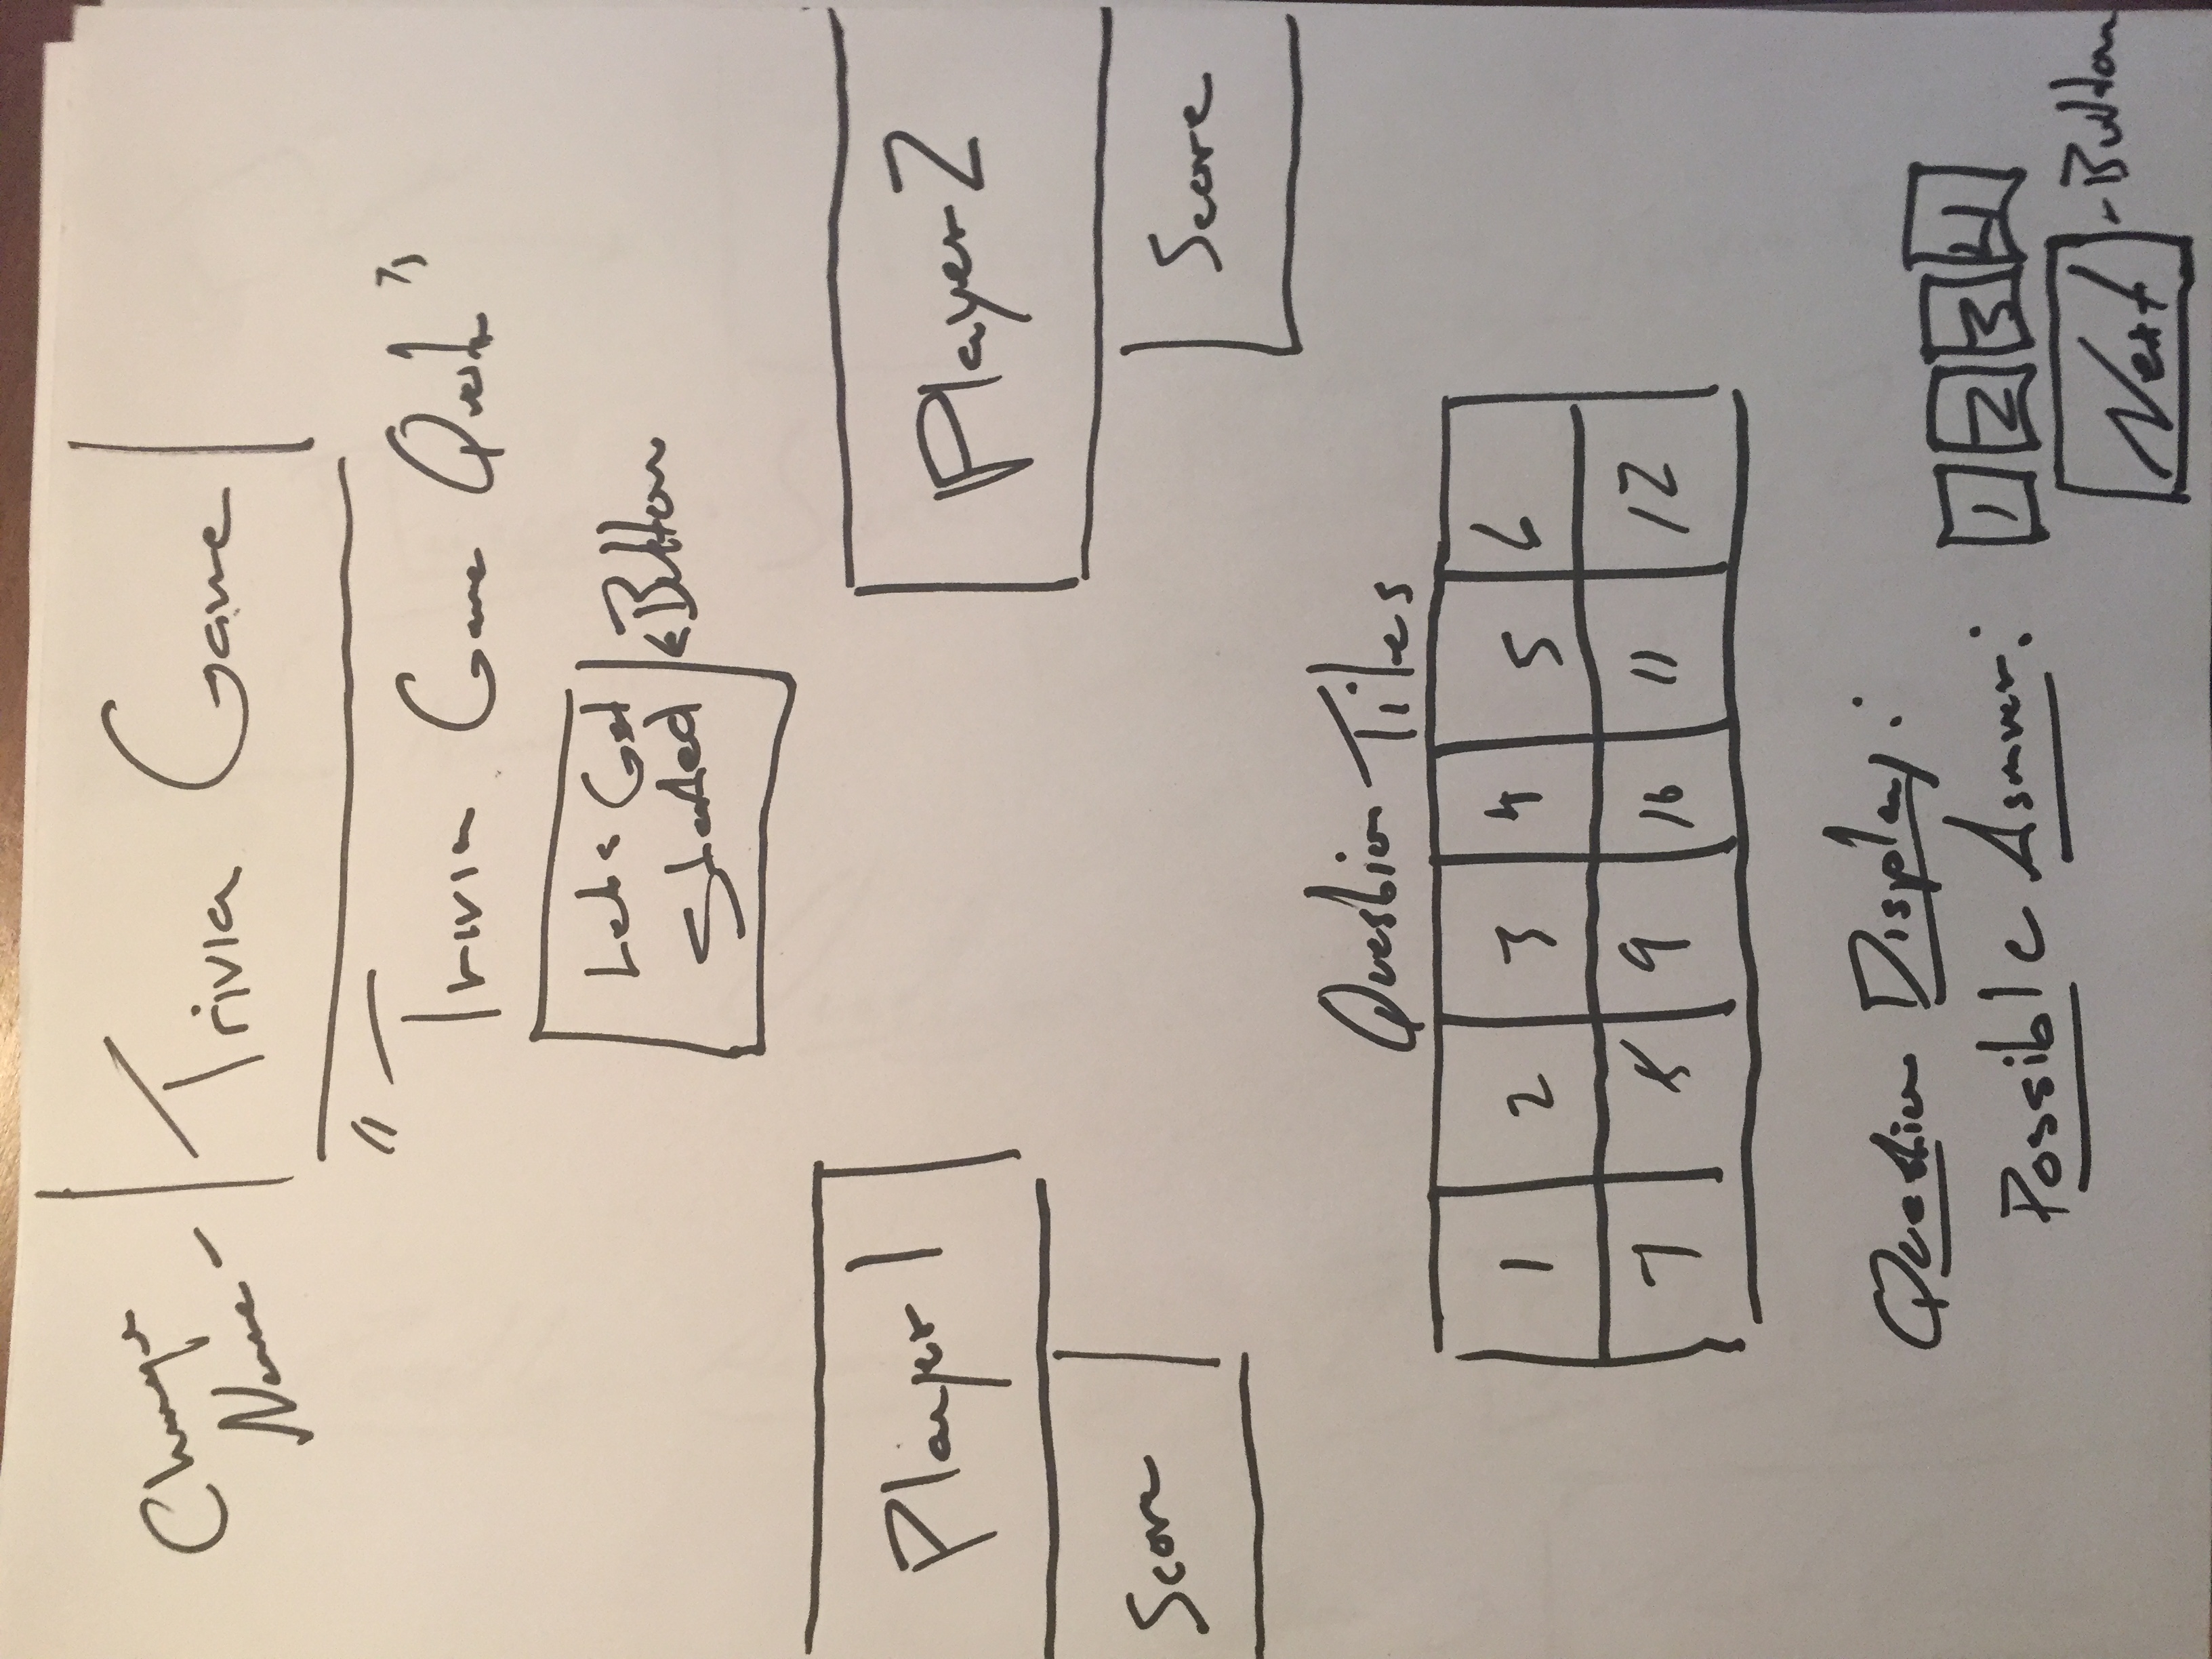 Change
Name -
Trivia Game
"Trivia Game Quest"
Lets Get
Started
< Button
Player 1
Player 2
Score
Score
Question Tiles
1 2 3 4 5 6
7 8 9 10 11 12
Question Display:
Possible Asnwer:
1 2 3 4
Next
- Button